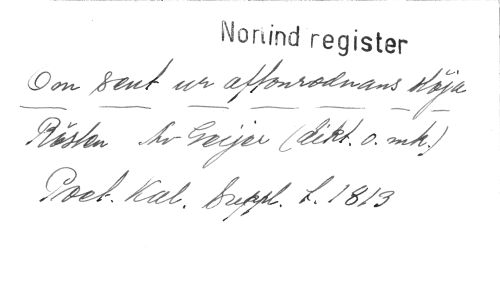 Nortind register
Om sent ur aftonrodnans slöja
Rösten Av Geijer (dikt. o. mk.)
Poet. Kal. Suppl. t. 1813